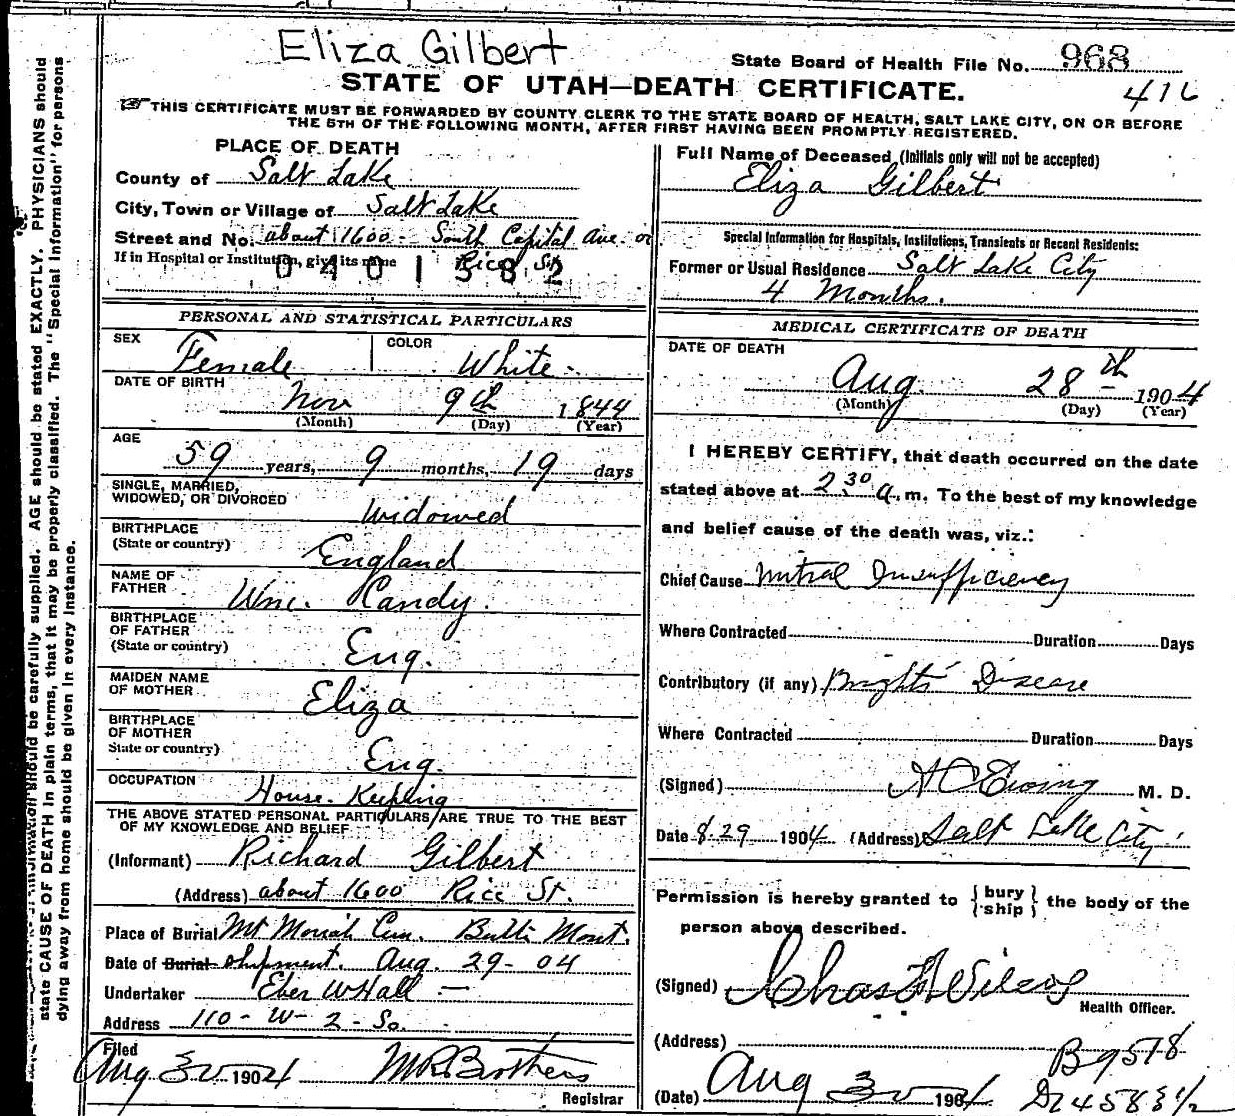 Eliza Gilbert
State Board of Health File No. 968
STATE OF UTAH—DEATH CERTIFICATE.
416
THIS CERTIFICATE MUST BE FORWARDED BY COUNTY CLERK TO THE STATE BOARD OF HEALTH, SALT LAKE CITY, ON OR BEFORE
THE 5TH OF THE FOLLOWING MONTH, AFTER FIRST HAVING BEEN PROMPTLY REGISTERED.
state CAUSE OF DEATH in plain terms, that it may be properly classified. The "Special Information" for persons
dying away from home should be given in every instance.
should be carefully supplied. AGE should be stated EXACTLY. PHYSICIANS should
PLACE OF DEATH
County of Salt Lake
City, Town or Village of Salt Lake
Street and No. about 1600 - South Capital Ave. or
If in Hospital or Institution, give its name Rice St.
0401382
PERSONAL AND STATISTICAL PARTICULARS
SEX Female
COLOR White
DATE OF BIRTH
Nov 9th 1844
(Month) (Day) (Year)
AGE
59 years, 9 months, 19 days
SINGLE, MARRIED,
WIDOWED, OR DIVORCED
Widowed
BIRTHPLACE
(State or country) England
NAME OF
FATHER Wm. Handy.
BIRTHPLACE
OF FATHER
(State or country) Eng.
MAIDEN NAME
OF MOTHER Eliza
BIRTHPLACE
OF MOTHER
State or country) Eng.
OCCUPATION House-Keeping
THE ABOVE STATED PERSONAL PARTICULARS ARE TRUE TO THE BEST
OF MY KNOWLEDGE AND BELIEF
(Informant) Richard Gilbert
(Address) about 1600 Rice St.
Place of Burial Mt Moriah Cem. Butte Mont.
Date of Burial Shipment. Aug. 29-04
Undertaker Eber W Hall
Address 110-W-2-So.
Filed
Aug 30 1904 M R Brothers
Registrar
Full Name of Deceased (Initials only will not be accepted)
Eliza Gilbert
Special Information for Hospitals, Institutions, Transients or Recent Residents:
Former or Usual Residence Salt Lake City
4 Months.
MEDICAL CERTIFICATE OF DEATH
DATE OF DEATH
Aug 28th 1904
(Month) (Day) (Year)
I HEREBY CERTIFY, that death occurred on the date
stated above at 2 30 a.m. To the best of my knowledge
and belief cause of the death was, viz.:
Chief Cause Mitral Insufficiency
Where Contracted Duration Days
Contributory (if any) Brights Disease
Where Contracted Duration Days
(Signed) A C Ewing M. D.
Date 8-29 1904 (Address) Salt Lake City
Permission is hereby granted to {bury
ship} the body of the
person above described.
(Signed) Chas F Wilcox
Health Officer.
(Address)
B9578
(Date) Aug 30 1904